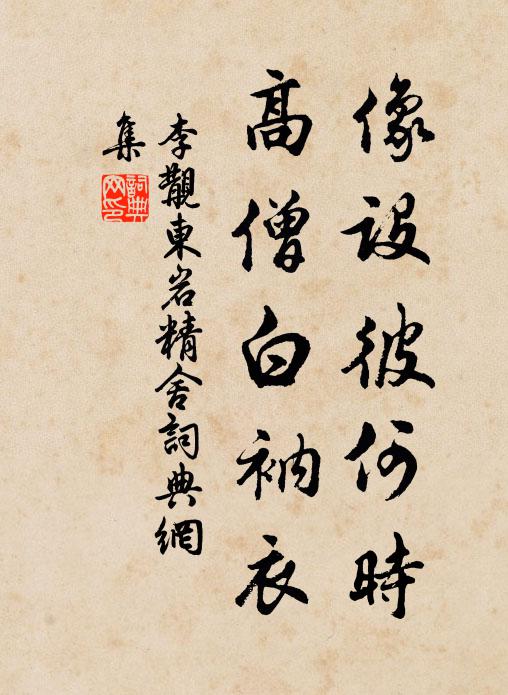 像設彼何時
高僧白衲衣
李觀東岩精舍詞典網
集
詞典
网印